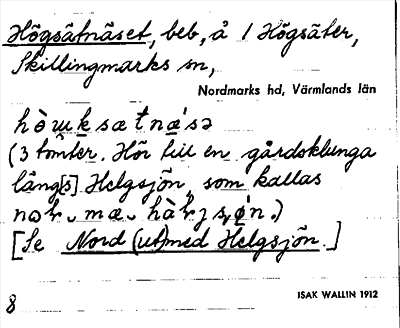 Högsätnäset, beb, å 1 Högsäter,
Skillingmarks sn,
Nordmarks hd, Värmlands län
(3 tomter. Hör till en gårdsklunga
läng[s] Helgsjön, som kallas
[Se Nord (ut)med Helgsjön.]
8
ISAK WALLIN 1912